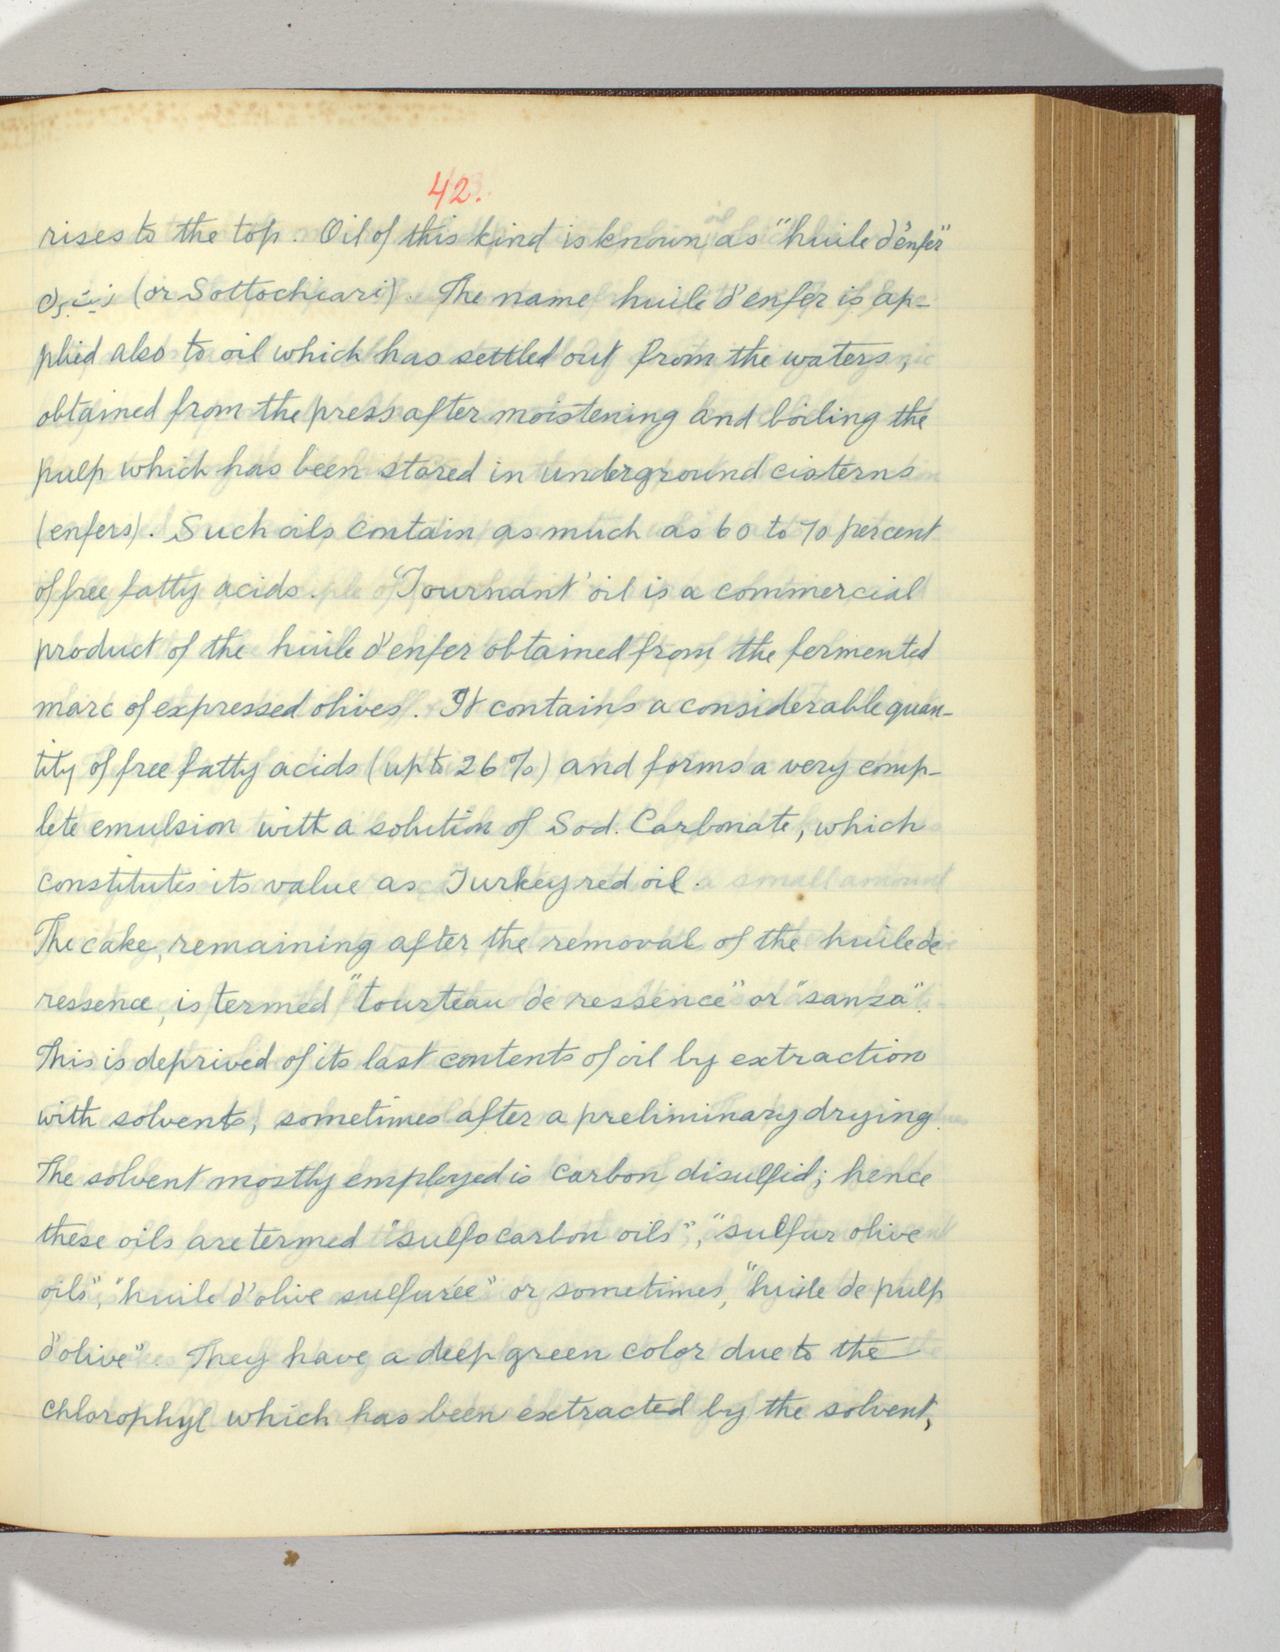 42.
rises to the top. Oil of this kind is known as "huile d'enfer"
(or Sottochiari). The name huile d'enfer is ap-
plied also to oil which has settled out from the waters,
obtained from the press after moistening and boiling the
pulp which has been stored in underground cisterns
(enfers). Such oils contain as much as 60 to 70 percent
of free fatty acids. "Tournant' oil is a commercial
product of the huile d'enfer obtained from the fermented
marc of expressed olives. It contains a considerable quan-
tity of free fatty acids (up to 26%) and forms a very comp-
lete emulsion with a solution of Sod. Carbonate, which
constitutes its value as Turkey red oil.
The cake, remaining after the removal of the huile de
ressence, is termed "tourteau de ressence" or "sansa".
This is deprived of its last contents of oil by extraction
with solvents, sometimes after a preliminary drying.
The solvent mostly employed is carbon disulfid; hence
these oils are termed "sulfocarbon oils", "sulfur olive
oils", "huile d'olive sulfurée" or sometimes, "huile de pulp
d'olive". They have a deep green color due to the
chlorophyl which has been extracted by the solvent,